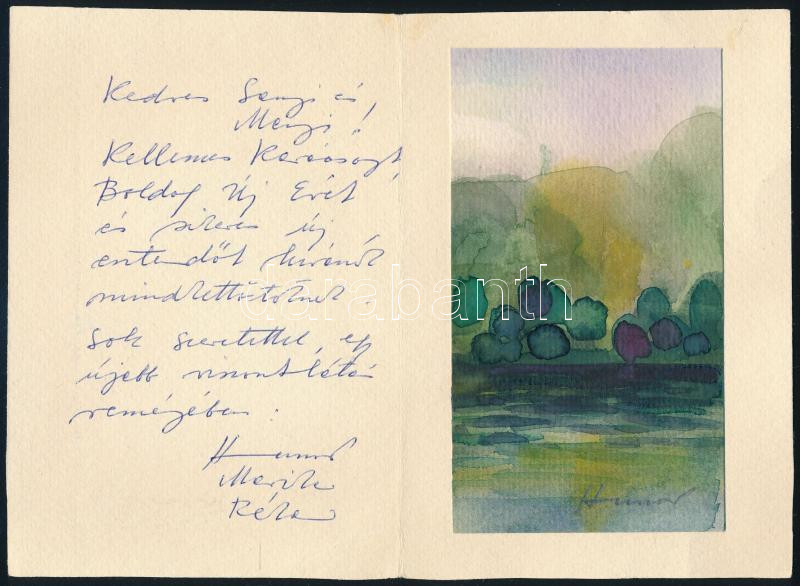 Kedves Sanyi és,
Manyi!
Kellemes Karácsonyt,
Boldog Új Évet
és sikeres új
esztendőt kívánok
mindkettőtöknek.
Sok szeretettel, egy
újabb viszontlátás
reményében:
Marika
Béla
darabanth